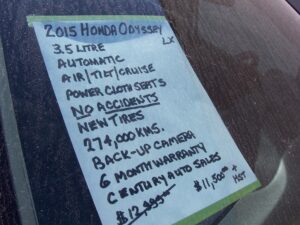 2015 HONDA ODYSSEY
LX
3.5 LITRE
AUTOMATIC
AIR/TILT/CRUISE
POWER CLOTH SEATS
NO ACCIDENTS
NEW TIRES
274,000 KMS.
BACK-UP CAMERA
6 MONTH WARRANTY
CENTURY AUTO SALES
$12,995.00
$11,500.00 + HST